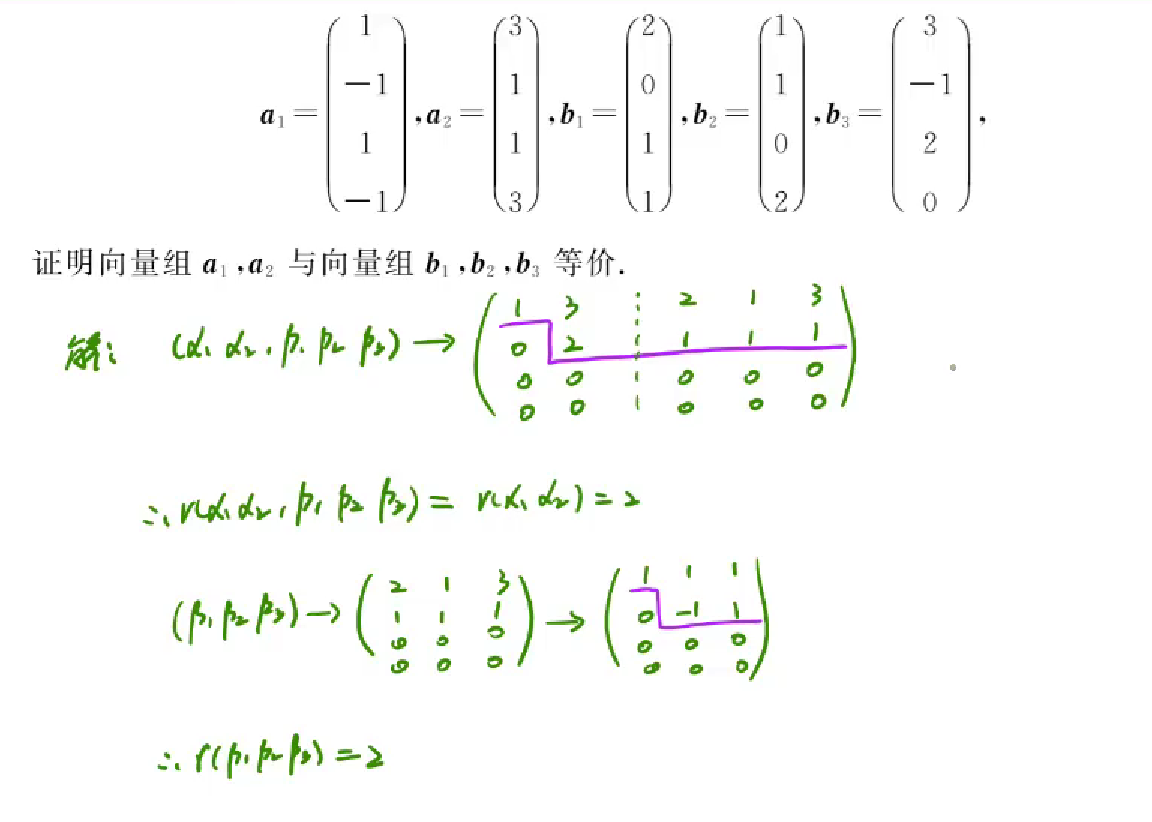 a₁ = (1, −1, 1, −1), a₂ = (3, 1, 1, 3), b₁ = (2, 0, 1, 1), b₂ = (1, 1, 0, 2), b₃ = (3, −1, 2, 0),
证明向量组 a₁,a₂ 与向量组 b₁,b₂,b₃ 等价.
解: (α₁ α₂, β₁ β₂ β₃) → ( 1 3 ⋮ 2 1 3
0 2 ⋮ 1 1 1
0 0 ⋮ 0 0 0
0 0 ⋮ 0 0 0 )
∴ r(α₁ α₂, β₁ β₂ β₃) = r(α₁ α₂) = 2
(β₁ β₂ β₃) → ( 2 1 3 → ( 1 1 1
1 1 1 0 -1 1
0 0 0 0 0 0
0 0 0 ) 0 0 0 )
∴ r(β₁ β₂ β₃) = 2